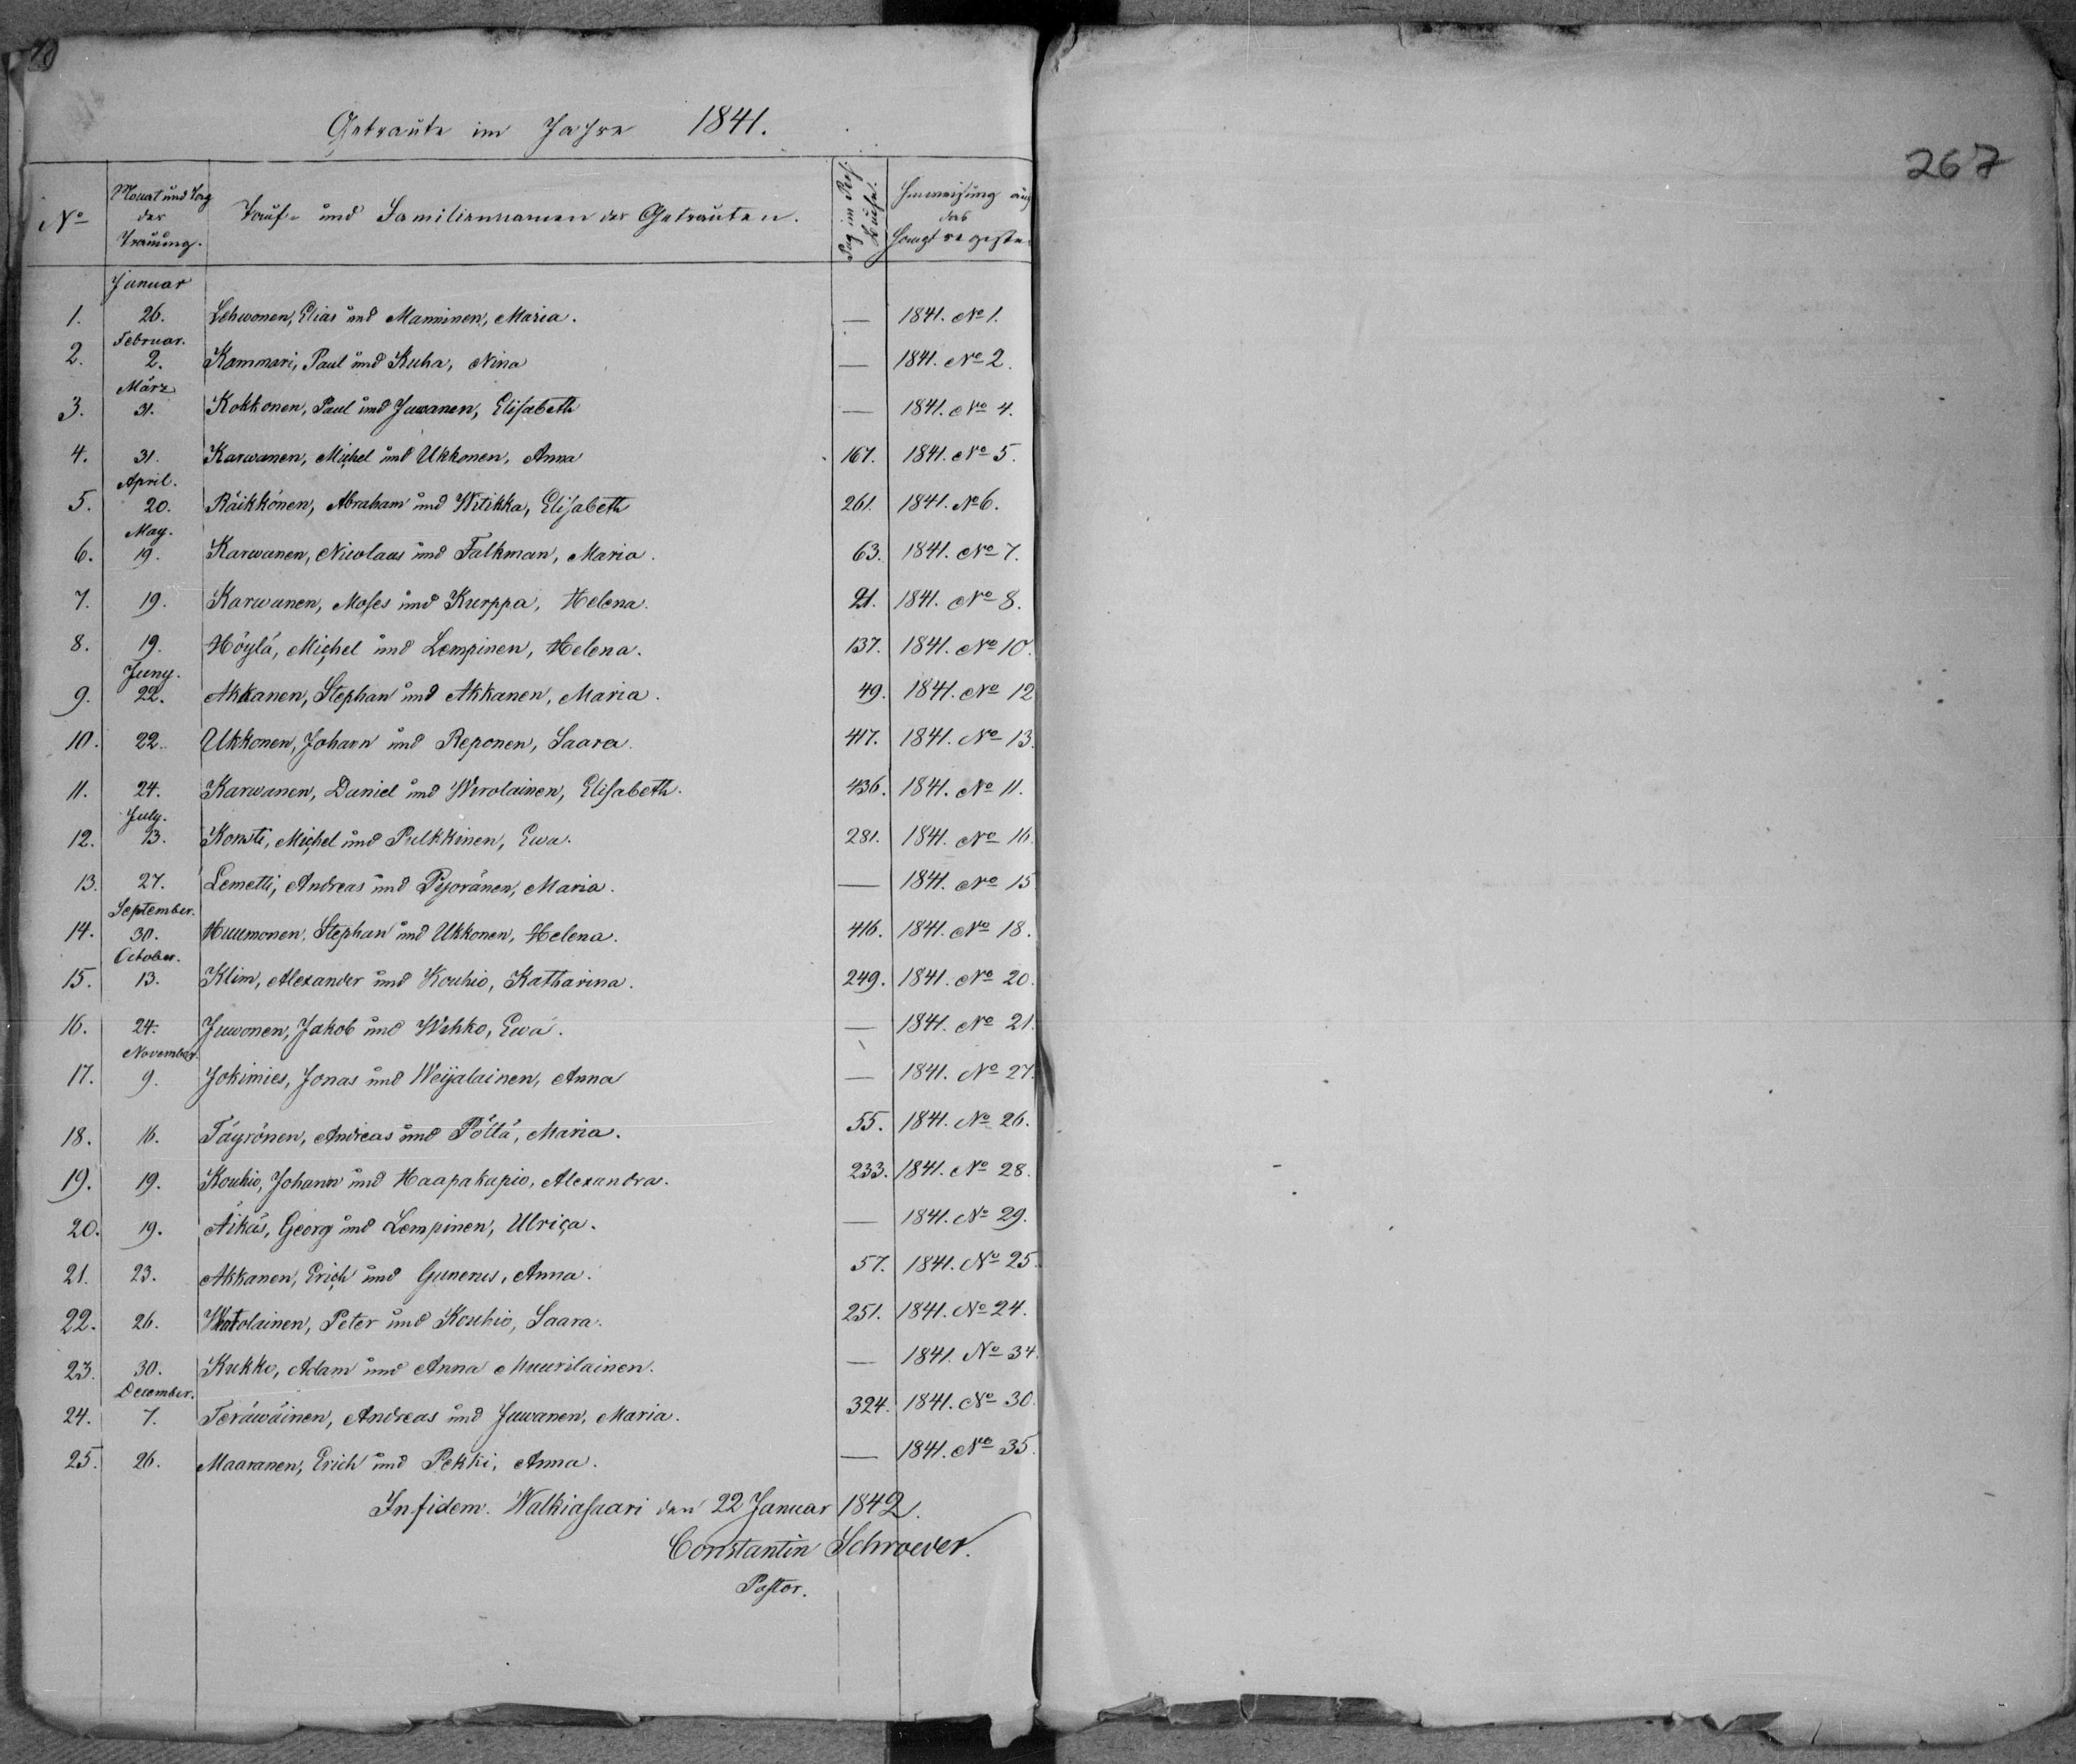 Getraute im Jahre 1841.
267
No
Monat und Tag der Trauung.
Tauf- und Familiennamen der Getrauten.
Pag im Pers. Buche.
Hinweisung auf das Hauptregister
Januar
1. 26. Lehwonen, Elias und Manninen, Maria. — 1841. No 1.
Februar.
2. 2. Kammari, Paul und Kuha, Nina — 1841. No 2.
März
3. 31. Kokkonen, Paul und Juwanen, Elisabeth — 1841. No 4.
4. 31. Karwanen, Michel und Ukkonen, Anna 167. 1841. No 5.
April.
5. 20. Räikkönen, Abraham und Witikka, Elisabeth 261. 1841. No 6.
May.
6. 19. Karwanen, Nicolaus und Falkman, Maria. 63. 1841. No 7.
7. 19. Karwanen, Moses und Kurppa, Helena. 21. 1841. No 8.
8. 19. Höylä, Michel und Lempinen, Helena. 137. 1841. No 10.
Juny.
9. 22. Akkanen, Stephan und Akkanen, Maria. 49. 1841. No 12
10. 22. Ukkonen, Johann und Reponen, Saara. 417. 1841. No 13.
11. 24. Karwanen, Daniel und Wirolainen, Elisabeth. 436. 1841. No 11.
July.
12. 13. Konsti, Michel und Pulkkinen, Ewa. 281. 1841. No 16.
13. 27. Lemetti, Andreas und Pyöränen, Maria. — 1841. No 15
September.
14. 30. Huumonen, Stephan und Ukkonen, Helena. 416. 1841. No 18.
October.
15. 13. Klim, Alexander und Kouhio, Katharina. 249. 1841. No 20.
16. 24. Juwonen, Jakob und Wihko, Ewa. — 1841. No 21.
November.
17. 9. Jokimies, Jonas und Weijalainen, Anna — 1841. No 27.
18. 16. Täyrönen, Andreas und Pöllä, Maria. 55. 1841. No 26.
19. 19. Kouhio, Johann und Haapakapio, Alexandra. 233. 1841. No 28.
20. 19. Äikäs, Georg und Lempinen, Ulrica. — 1841. No 29.
21. 23. Akkanen, Erich und Gunerus, Anna. 57. 1841. No 25.
22. 26. Peter und Kouhio, Saara. 251. 1841. No 24.
23. 30. Kukko, Adam und Anna Muurilainen. — 1841. No 34.
December.
24. 7. Teräwäinen, Andreas und Juwanen, Maria. 324. 1841. No 30.
25. 26. Maaranen, Erich und Pekki, Anna. — 1841. No 35.
In fidem. Walkiasaari den 22 Januar 1842.
Constantin Schroeder.
Pastor.